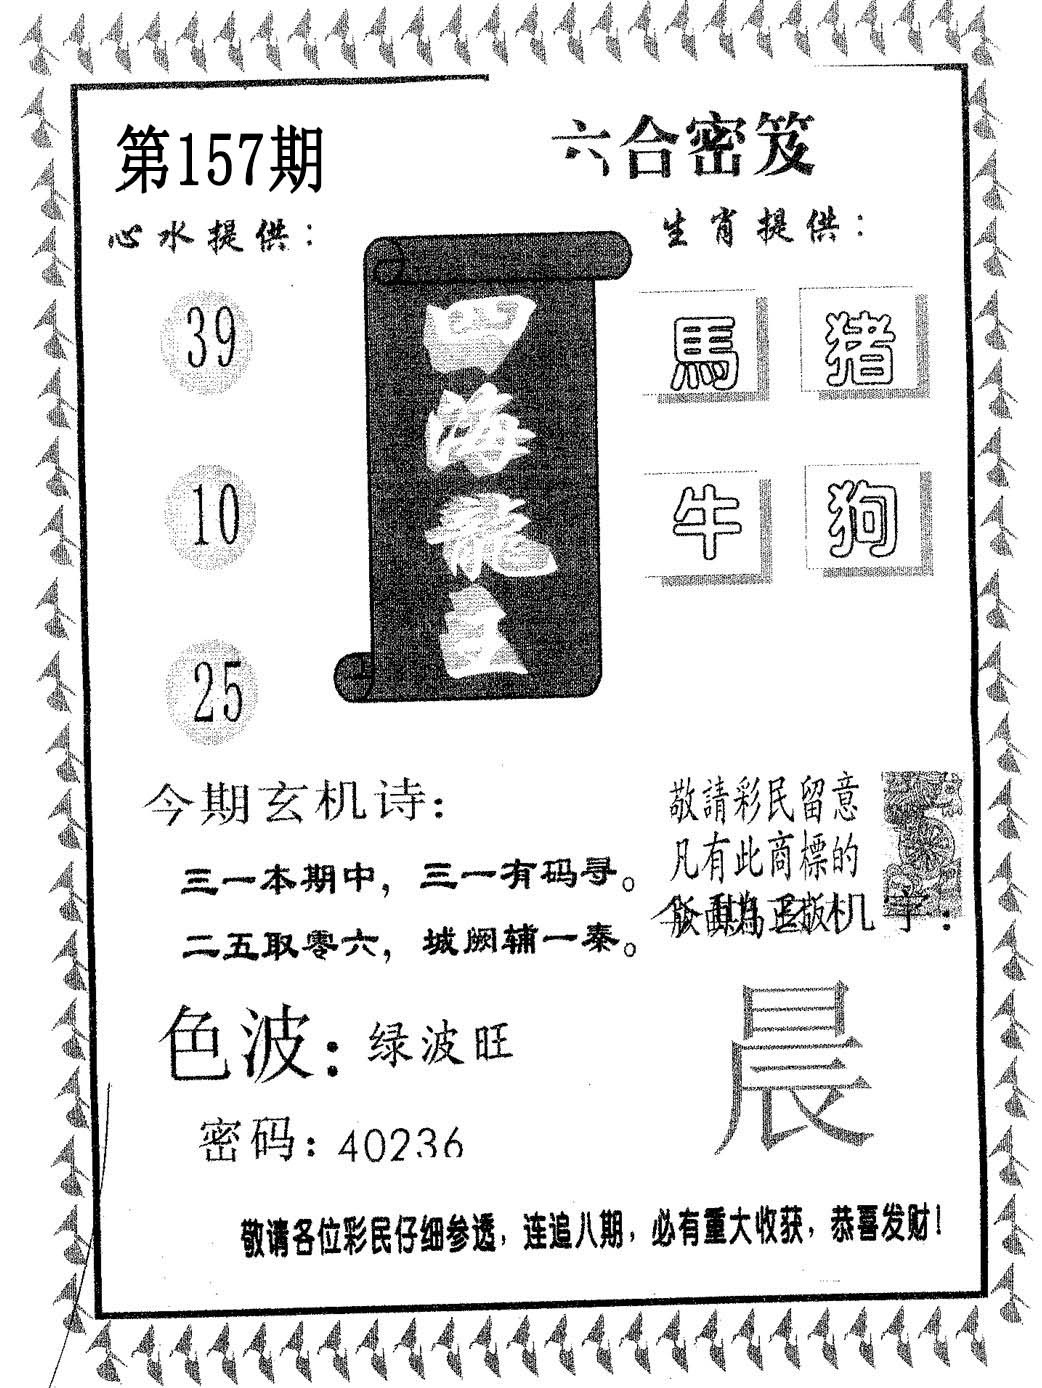 第157期
六合密笈
心水提供：
生肖提供：
39
10
25
四海龍王
馬 猪
牛 狗
今期玄机诗：
三一本期中，三一有码寻。
二五取零六，城阙辅一秦。
敬請彩民留意
凡有此商標的
版面為正版
机字：
色波：绿波旺
密码：40236
晨
敬请各位彩民仔细参透，连追八期，必有重大收获，恭喜发财！